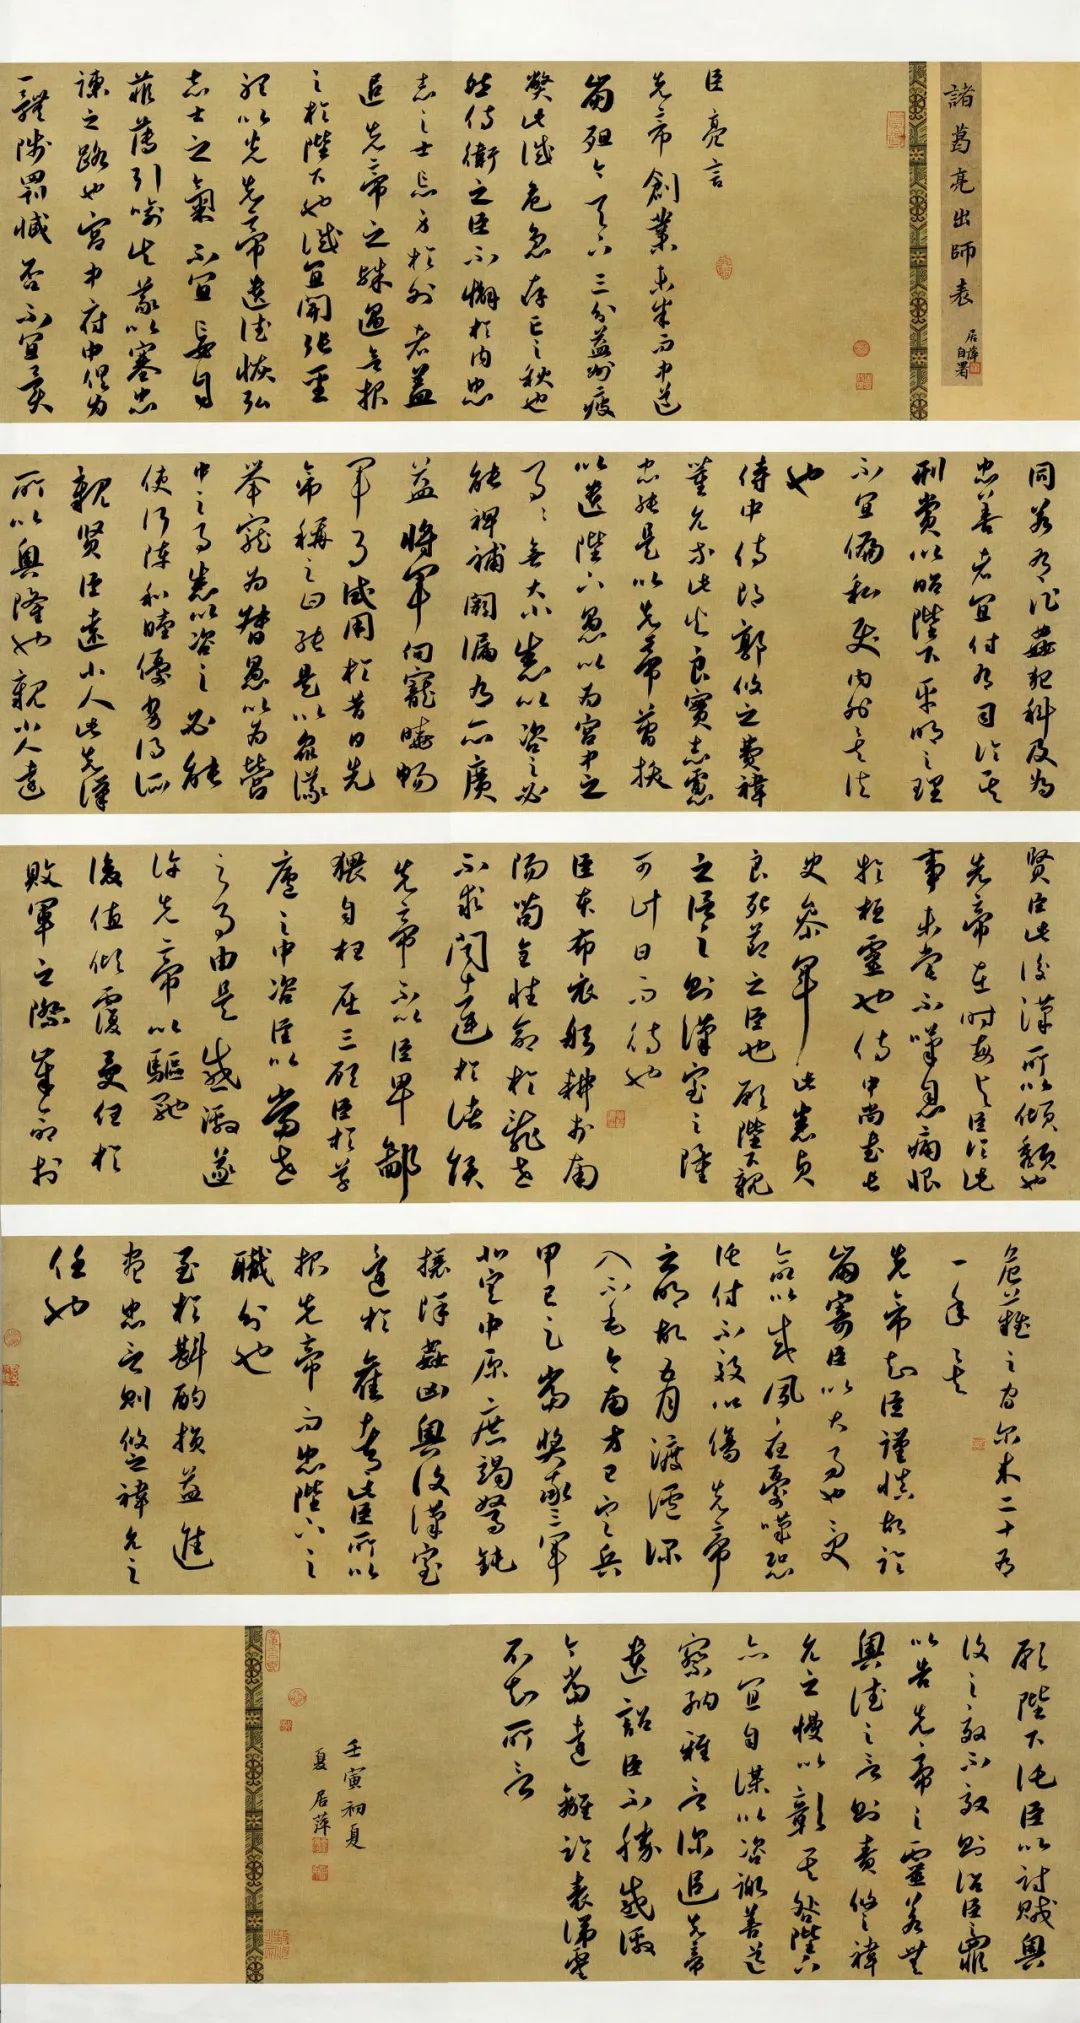 諸葛亮出師表
居萍自署
臣亮言
先帝創業未半而中道
崩殂今天下三分益州疲
弊此誠危急存亡之秋也
然侍衛之臣不懈於内忠
志之士忘身於外者蓋
追先帝之殊遇欲報
之於陛下也誠宜開張聖
聽以光先帝遺德恢弘
志士之氣不宜妄自
菲薄引喻失義以塞忠
諫之路也宮中府中俱為
一體陟罰臧否不宜異
同若有作姦犯科及為
忠善者宜付有司論其
刑賞以昭陛下平明之理
不宜偏私使内外異法
也
侍中侍郎郭攸之費禕
董允等此皆良實志慮
忠純是以先帝簡拔
以遺陛下愚以為宮中之
事事無大小悉以咨之必
能裨補闕漏有所廣
益將軍向寵曉暢
軍事試用於昔日先
帝稱之曰能是以衆議
舉寵為督愚以為營
中之事悉以咨之必能
使行陣和睦優劣得所
親賢臣遠小人此先漢
所以興隆也親小人遠
賢臣此後漢所以傾頹也
先帝在時每與臣論此
事未嘗不嘆息痛恨
於桓靈也侍中尚書長
史參軍此悉貞
良死節之臣也願陛下親
之信之則漢室之隆
可計日而待也
臣本布衣躬耕於南
陽苟全性命於亂世
不求聞達於諸侯
先帝不以臣卑鄙
猥自枉屈三顧臣於草
廬之中咨臣以當世
之事由是感激遂
許先帝以驅馳
後值傾覆受任於
敗軍之際奉命於
危難之間爾來二十有
一年矣
先帝知臣謹慎故臨
崩寄臣以大事也受
命以來夙夜憂嘆恐
託付不效以傷先帝
之明故五月渡瀘深
入不毛今南方已定兵
甲已足當獎率三軍
北定中原庶竭駑鈍
攘除姦凶興復漢室
還於舊都此臣所以
報先帝而忠陛下之
職分也
至於斟酌損益進
盡忠言則攸之禕允之
任也
願陛下託臣以討賊興
復之效不效則治臣之罪
以告先帝之靈若無
興德之言則責攸之禕
允之慢以彰其咎陛下
亦宜自謀以咨諏善道
察納雅言深追先帝
遺詔臣不勝感激
今當遠離臨表涕零
不知所言
壬寅初夏
夏居萍